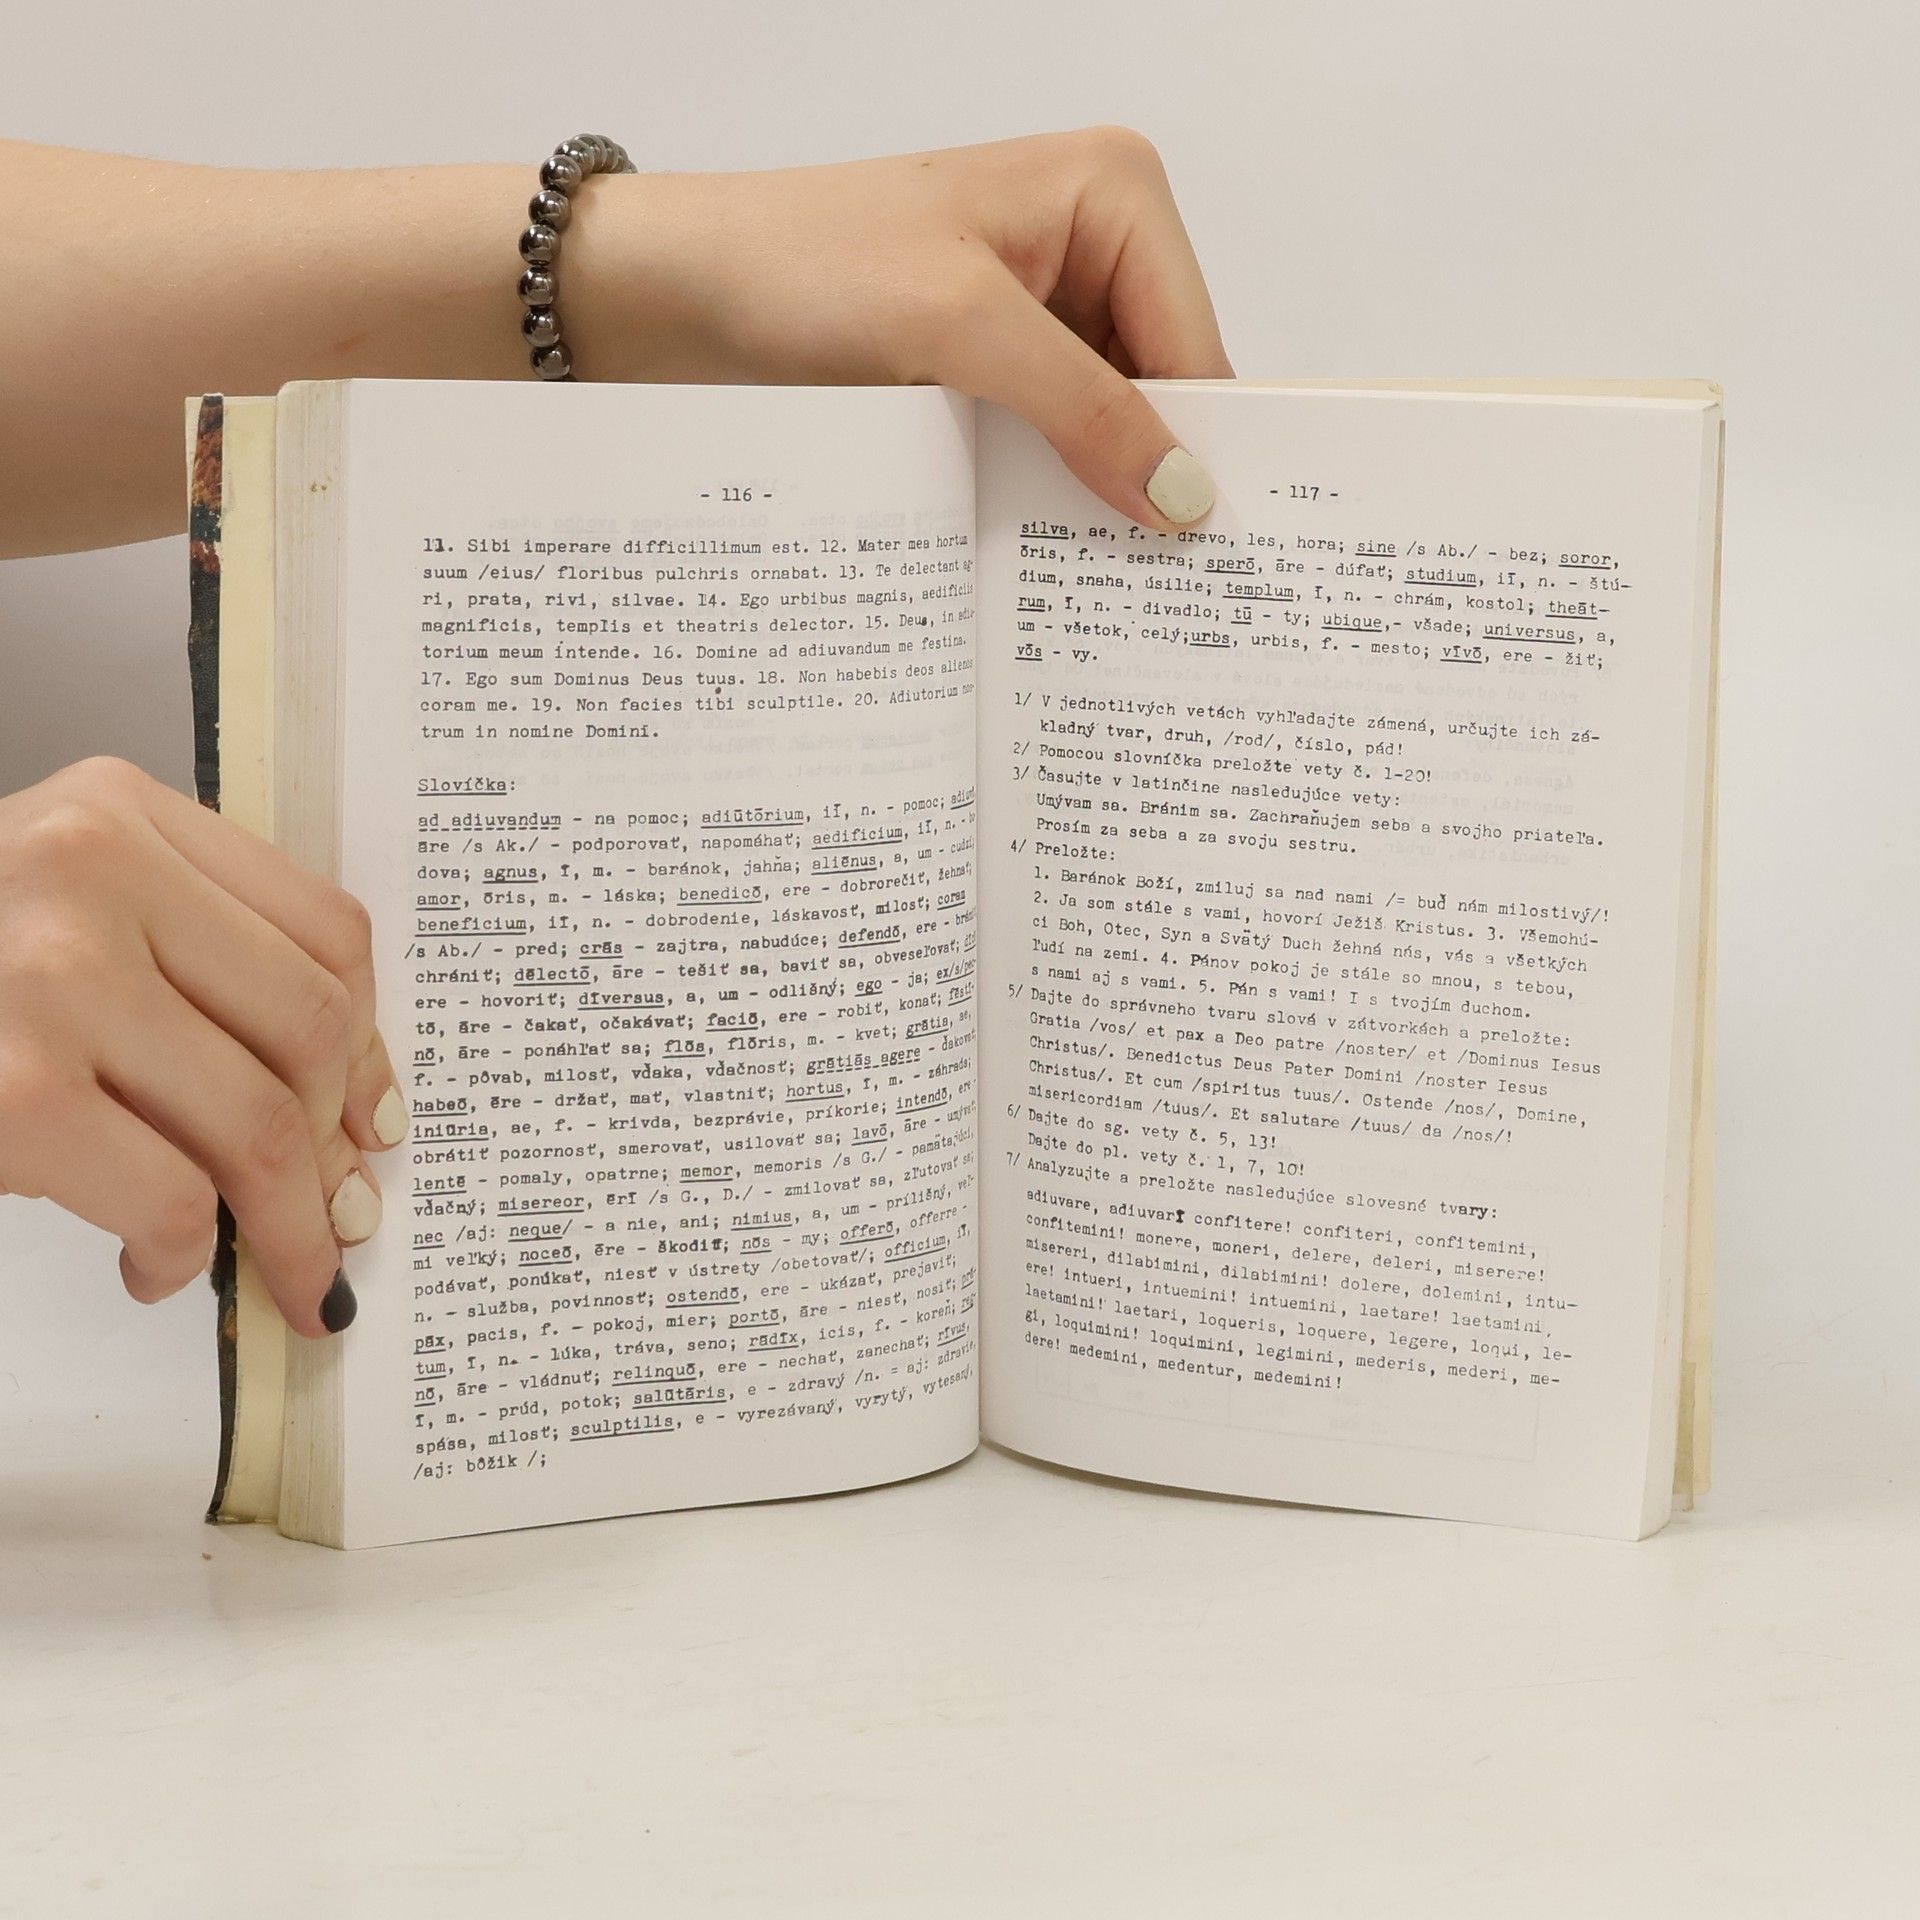 - 116 -
11. Sibi imperare difficillimum est. 12. Mater mea hortum
suum /eius/ floribus pulchris ornabat. 13. Te delectant ag-
ri, prata, rivi, silvae. 14. Ego urbibus magnis, aedificiis
magnificis, templis et theatris delector. 15. Deus, in adiu-
torium meum intende. 16. Domine ad adiuvandum me festina.
17. Ego sum Dominus Deus tuus. 18. Non habebis deos alienos
coram me. 19. Non facies tibi sculptile. 20. Adiutorium nos-
trum in nomine Dominī.
Slovíčka:
ad adiuvandum - na pomoc; adiūtōrium, iī, n. - pomoc;
āre /s Ak./ - podporovať, napomáhať; aedificium, iī, n. -
dova; agnus, ī, m. - baránok, jahňa; aliēnus, a, um - cudzí;
amor, ōris, m. - láska; benedicō, ere - dobrorečiť, žehnať;
beneficium, iī, n. - dobrodenie, láskavosť, milosť; coram
/s Ab./ - pred; crās - zajtra, nabudúce; defendō, ere -
chrániť; dēlectō, āre - tešiť sa, baviť sa, obveseľovať;
ere - hovoriť; dīversus, a, um - odlišný; ego - ja; ex/s/pec-
tō, āre - čakať, očakávať; faciō, ere - robiť, konať; fēstī-
nō, āre - ponáhľať sa; flōs, flōris, m. - kvet; grātia, ae,
f. - pôvab, milosť, vďaka, vďačnosť; grātiās agere - ďakovať;
habeō, ēre - držať, mať, vlastniť; hortus, ī, m. - záhrada;
iniūria, ae, f. - krivda, bezprávie, príkorie; intendō, ere-
obrátiť pozornosť, smerovať, usilovať sa; lavō, āre - umývať;
lentē - pomaly, opatrne; memor, memoris /s G./ - pamätajúci,
vďačný; misereor, ērī /s G., D./ - zmilovať sa, zľutovať sa;
nec /aj: neque/ - a nie, ani; nimius, a, um - prílišný, veľ-
mi veľký; noceō, ēre - škodiť; nōs - my; offerō, offerre -
podávať, ponúkať, niesť v ústrety /obetovať/; officium, iī,
n. - služba, povinnosť; ostendō, ere - ukázať, prejaviť;
pāx, pacis, f. - pokoj, mier; portō, āre - niesť, nosiť; prā-
tum, ī, n. - lúka, tráva, seno; rādīx, icis, f. - koreň; rēg-
nō, āre - vládnuť; relinquō, ere - nechať, zanechať; rīvus,
ī, m. - prúd, potok; salūtāris, e - zdravý /n. = aj: zdravie,
spása, milosť; sculptilis, e - vyrezávaný, vyrytý, vytesaný,
/aj: bôžik /;
- 117 -
silva, ae, f. - drevo, les, hora; sine /s Ab./ - bez; soror,
ōris, f. - sestra; sperō, āre - dúfať; studium, iī, n. - štú-
dium, snaha, úsilie; templum, ī, n. - chrám, kostol; theāt-
rum, ī, n. - divadlo; tū - ty; ubique,- všade; universus, a,
um - všetok, celý;urbs, urbis, f. - mesto; vīvō, ere - žiť;
vōs - vy.
1/ V jednotlivých vetách vyhľadajte zámená, určujte ich zá-
kladný tvar, druh, /rod/, číslo, pád!
2/ Pomocou slovníčka preložte vety č. 1-20!
3/ Časujte v latinčine nasledujúce vety:
Umývam sa. Bránim sa. Zachraňujem seba a svojho priateľa.
Prosím za seba a za svoju sestru.
4/ Preložte:
1. Baránok Boží, zmiluj sa nad nami /= buď nám milostivý/!
2. Ja som stále s vami, hovorí Ježiš Kristus. 3. Všemohú-
ci Boh, Otec, Syn a Svätý Duch žehná nás, vás a všetkých
ľudí na zemi. 4. Pánov pokoj je stále so mnou, s tebou,
s nami aj s vami. 5. Pán s vami! I s tvojím duchom.
5/ Dajte do správneho tvaru slová v zátvorkách a preložte:
Gratia /vos/ et pax a Deo patre /noster/ et /Dominus Iesus
Christus/. Benedictus Deus Pater Domini /noster Iesus
Christus/. Et cum /spiritus tuus/. Ostende /nos/, Domine,
misericordiam /tuus/. Et salutare /tuus/ da /nos/!
6/ Dajte do sg. vety č. 5, 13!
Dajte do pl. vety č. 1, 7, 10!
7/ Analyzujte a preložte nasledujúce slovesné tvary:
adiuvare, adiuvarī confitere! confiteri, confitemini,
confitemini! monere, moneri, delere, deleri, miserere!
misereri, dilabimini, dilabimini! dolere, dolemini, intu-
ere! intueri, intuemini! intuemini, laetare! laetamini,
laetamini! laetari, loqueris, loquere, legere, loqui, le-
gi, loquimini! loquimini, legimini, mederis, mederi, me-
dere! medemini, medentur, medemini!